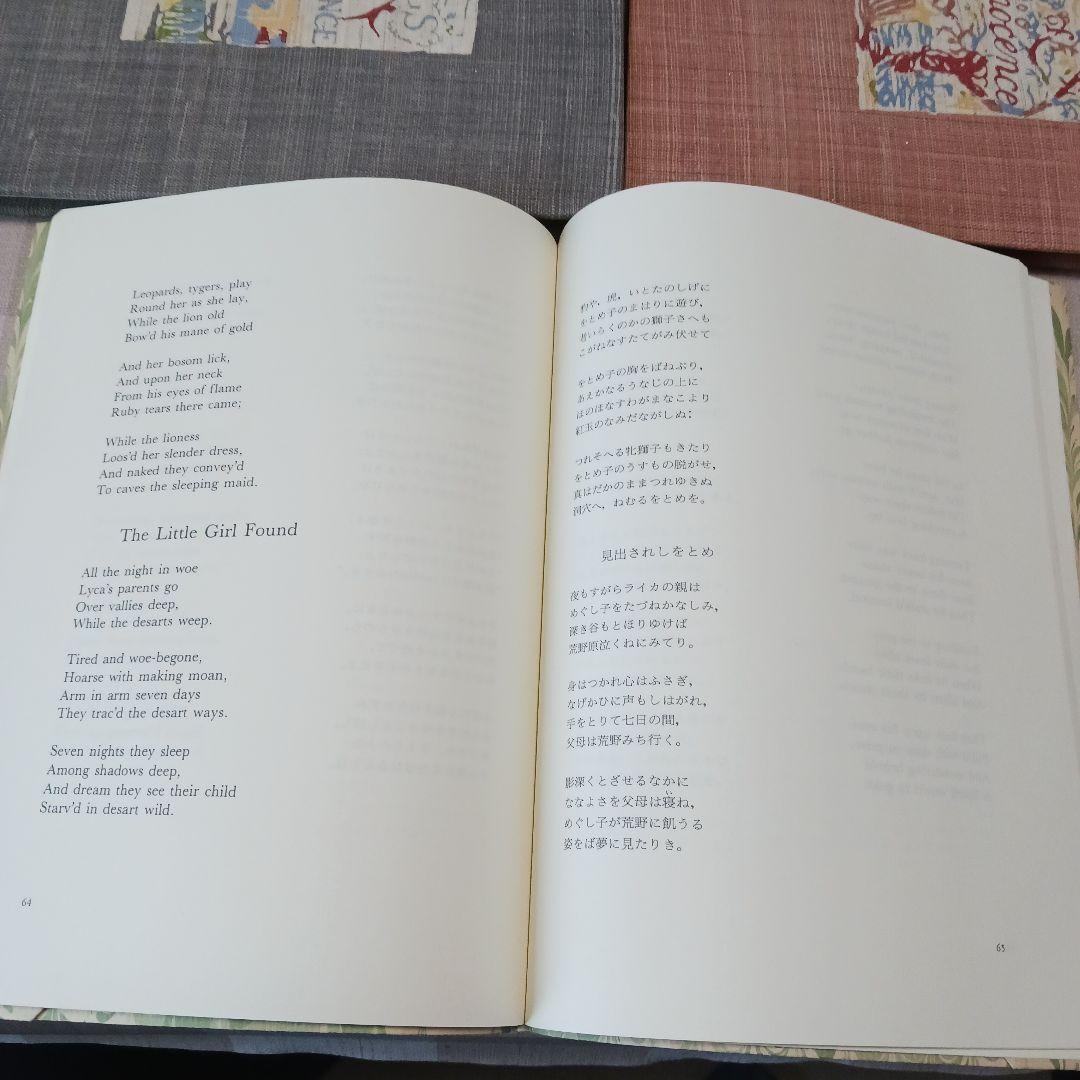 NCE
of
nnocence
Leopards, tygers, play
Round her as she lay,
While the lion old
Bow'd his mane of gold
And her bosom lick,
And upon her neck
From his eyes of flame
Ruby tears there came;
While the lioness
Loos'd her slender dress,
And naked they convey'd
To caves the sleeping maid.
The Little Girl Found
All the night in woe
Lyca's parents go
Over vallies deep,
While the desarts weep.
Tired and woe-begone,
Hoarse with making moan,
Arm in arm seven days
They trac'd the desart ways.
Seven nights they sleep
Among shadows deep,
And dream they see their child
Starv'd in desart wild.
64
豹や,虎,いとたのしげに
をとめ子のまはりに遊び,
老いらくのかの獅子さへも
こがねなすたてがみ伏せて
をとめ子の胸をばねぶり,
あえかなるうなじの上に
ほのほなすわがまなこより
紅玉のなみだながしぬ;
つれそへる牝獅子もきたり
をとめ子のうすもの脱がせ,
真はだかのままつれゆきぬ
洞穴へ,ねむるをとめを。
見出されしをとめ
夜もすがらライカの親は
めぐし子をたづねかなしみ,
深き谷もとほりゆけば
荒野原泣くねにみてり。
身はつかれ心はふさぎ,
なげかひに声もしはがれ,
手をとりて七日の間,
父母は荒野みち行く。
影深くとざせるなかに
ななよさを父母は寝ね,
めぐし子が荒野に飢うる
姿をば夢に見たりき。
65